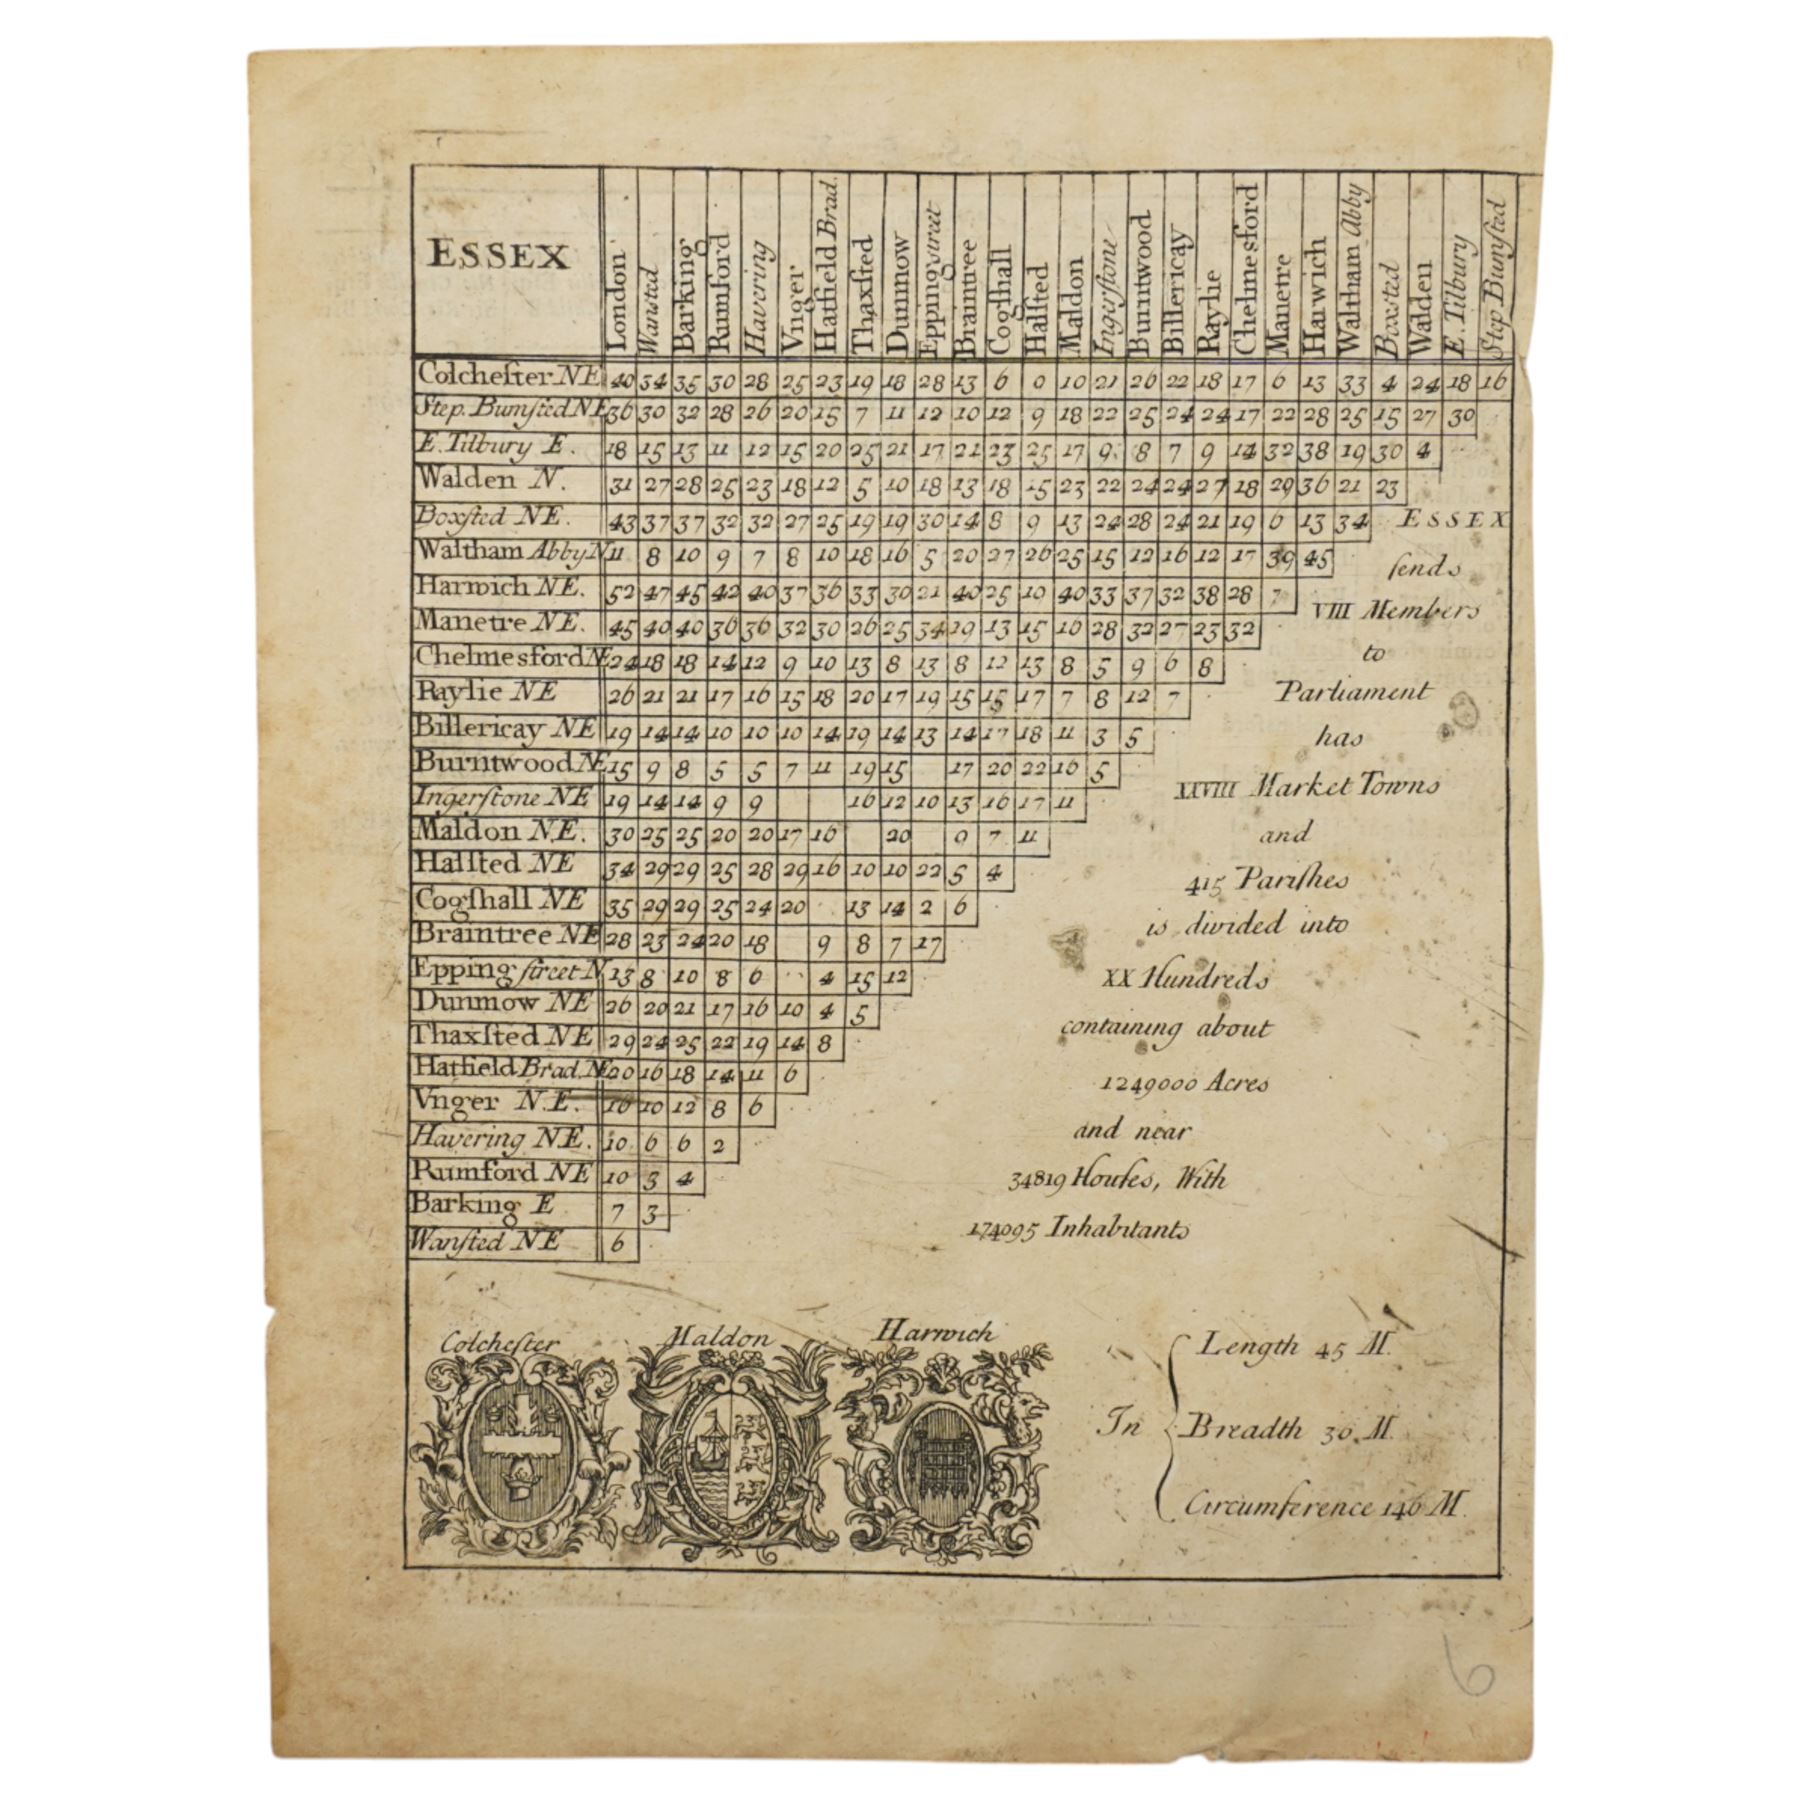 ESSEX London Wansted Barking Rumford Havering Vnger Hatfield Brad. Thaxſted Dunmow Epping street Braintree Cogſhall Halſted Maldon Ingerſtone Burntwood Billericay Raylie Chelmesford Manetre Harwich Waltham Abby Boxsted Walden E. Tilbury Step Bumſted
Colcheſter NE 40 34 35 30 28 25 23 19 18 28 13 6 9 10 21 26 22 18 17 6 13 33 4 24 18 16
Step. Bumſted NE 36 30 32 28 26 20 15 7 11 12 10 12 9 18 22 25 24 24 17 22 28 25 15 27 30
E. Tilbury E. 18 15 13 11 12 15 20 25 21 17 21 23 25 17 9 8 7 9 14 32 38 19 30 4
Walden N. 31 27 28 25 23 18 12 5 10 18 13 18 15 23 22 24 24 27 18 29 36 21 23
Boxſted NE. 43 37 37 32 32 27 25 19 19 30 14 8 9 13 24 28 24 21 19 6 13 34
Waltham Abby N 11 8 10 9 7 8 10 18 16 5 20 27 26 25 15 12 16 12 17 39 45
Harwich NE. 52 47 45 42 40 37 36 33 30 21 40 25 19 40 33 37 32 38 28 7
Manetre NE. 45 40 40 36 36 32 30 26 25 34 19 13 15 16 28 32 27 23 32
Chelmesford NE 24 18 18 14 12 9 10 13 8 13 8 12 13 8 5 9 6 8
Raylie NE 26 21 21 17 16 15 18 20 17 19 15 15 17 7 8 12 7
Billericay NE 19 14 14 10 10 10 14 19 14 13 14 17 18 11 3 5
Burntwood NE 15 9 8 5 5 7 11 19 15 17 20 22 16 5
Ingerſtone NE 19 14 14 9 9 16 12 10 13 16 17 11
Maldon NE. 30 25 25 20 20 17 16 20 9 7 11
Halſted NE 34 29 29 25 28 29 16 10 10 22 5 4
Cogſhall NE 35 29 29 25 24 20 13 14 2 6
Braintree NE 28 23 24 20 18 9 8 7 17
Epping ſtreet N. 13 8 10 8 6 4 15 12
Dunmow NE 26 20 21 17 16 10 4 5
Thaxſted NE 29 24 25 22 19 14 8
Hatfield Brad. NE 20 16 18 14 11 6
Vnger N.E. 16 10 12 8 6
Havering NE. 10 6 6 2
Rumford NE 10 3 4
Barking E 7 3
Wanſted NE 6
ESSEX
ſends
VIII Members
to
Parliament
has
XXVIII Market Towns
and
415 Pariſhes
is divided into
XX Hundreds
containing about
1249000 Acres
and near
34819 Houſes, With
174095 Inhabitants
Colcheſter
Maldon
Harwich
In
Length 45 M.
Breadth 30 M.
Circumference 146 M.
6